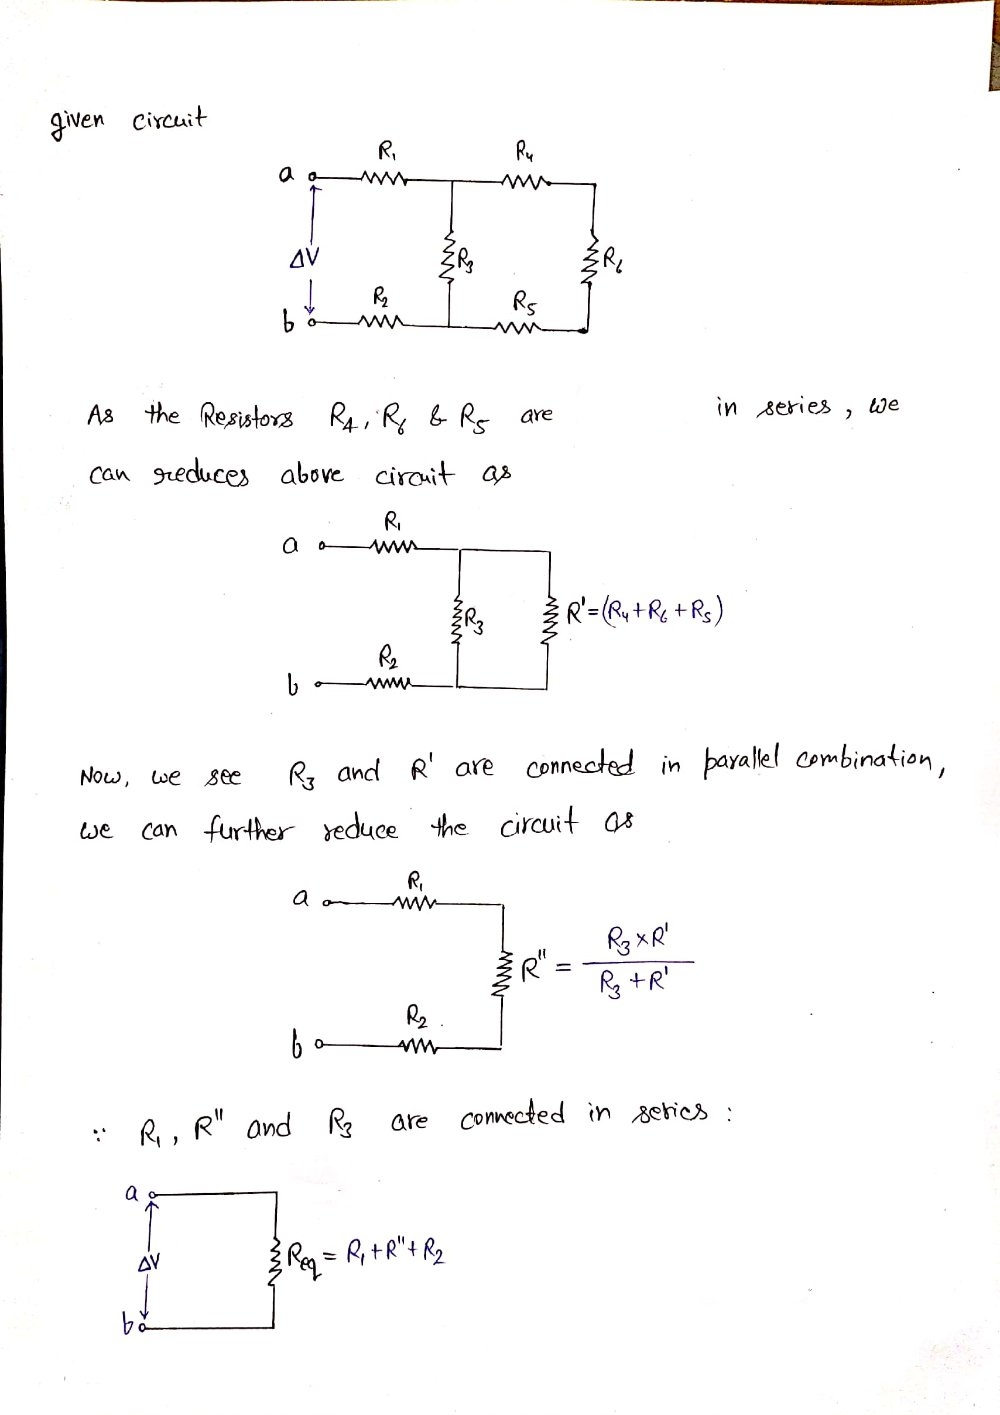 given circuit
R₁ R₄
a
ΔV R₃ R₆
R₂ R₅
b
As the Resistors R₄, R₆ & R₅ are in series, we
can reduces above circuit as
R₁
a
R₃ R'=(R₄+R₆+R₅)
R₂
b
Now, we see R₃ and R' are connected in parallel combination,
we can further reduce the circuit as
R₁
a
R" = R₃×R'
R₃+R'
R₂
b
∵ R₁, R" and R₃ are connected in series :
a
ΔV Req = R₁+R"+R₂
b